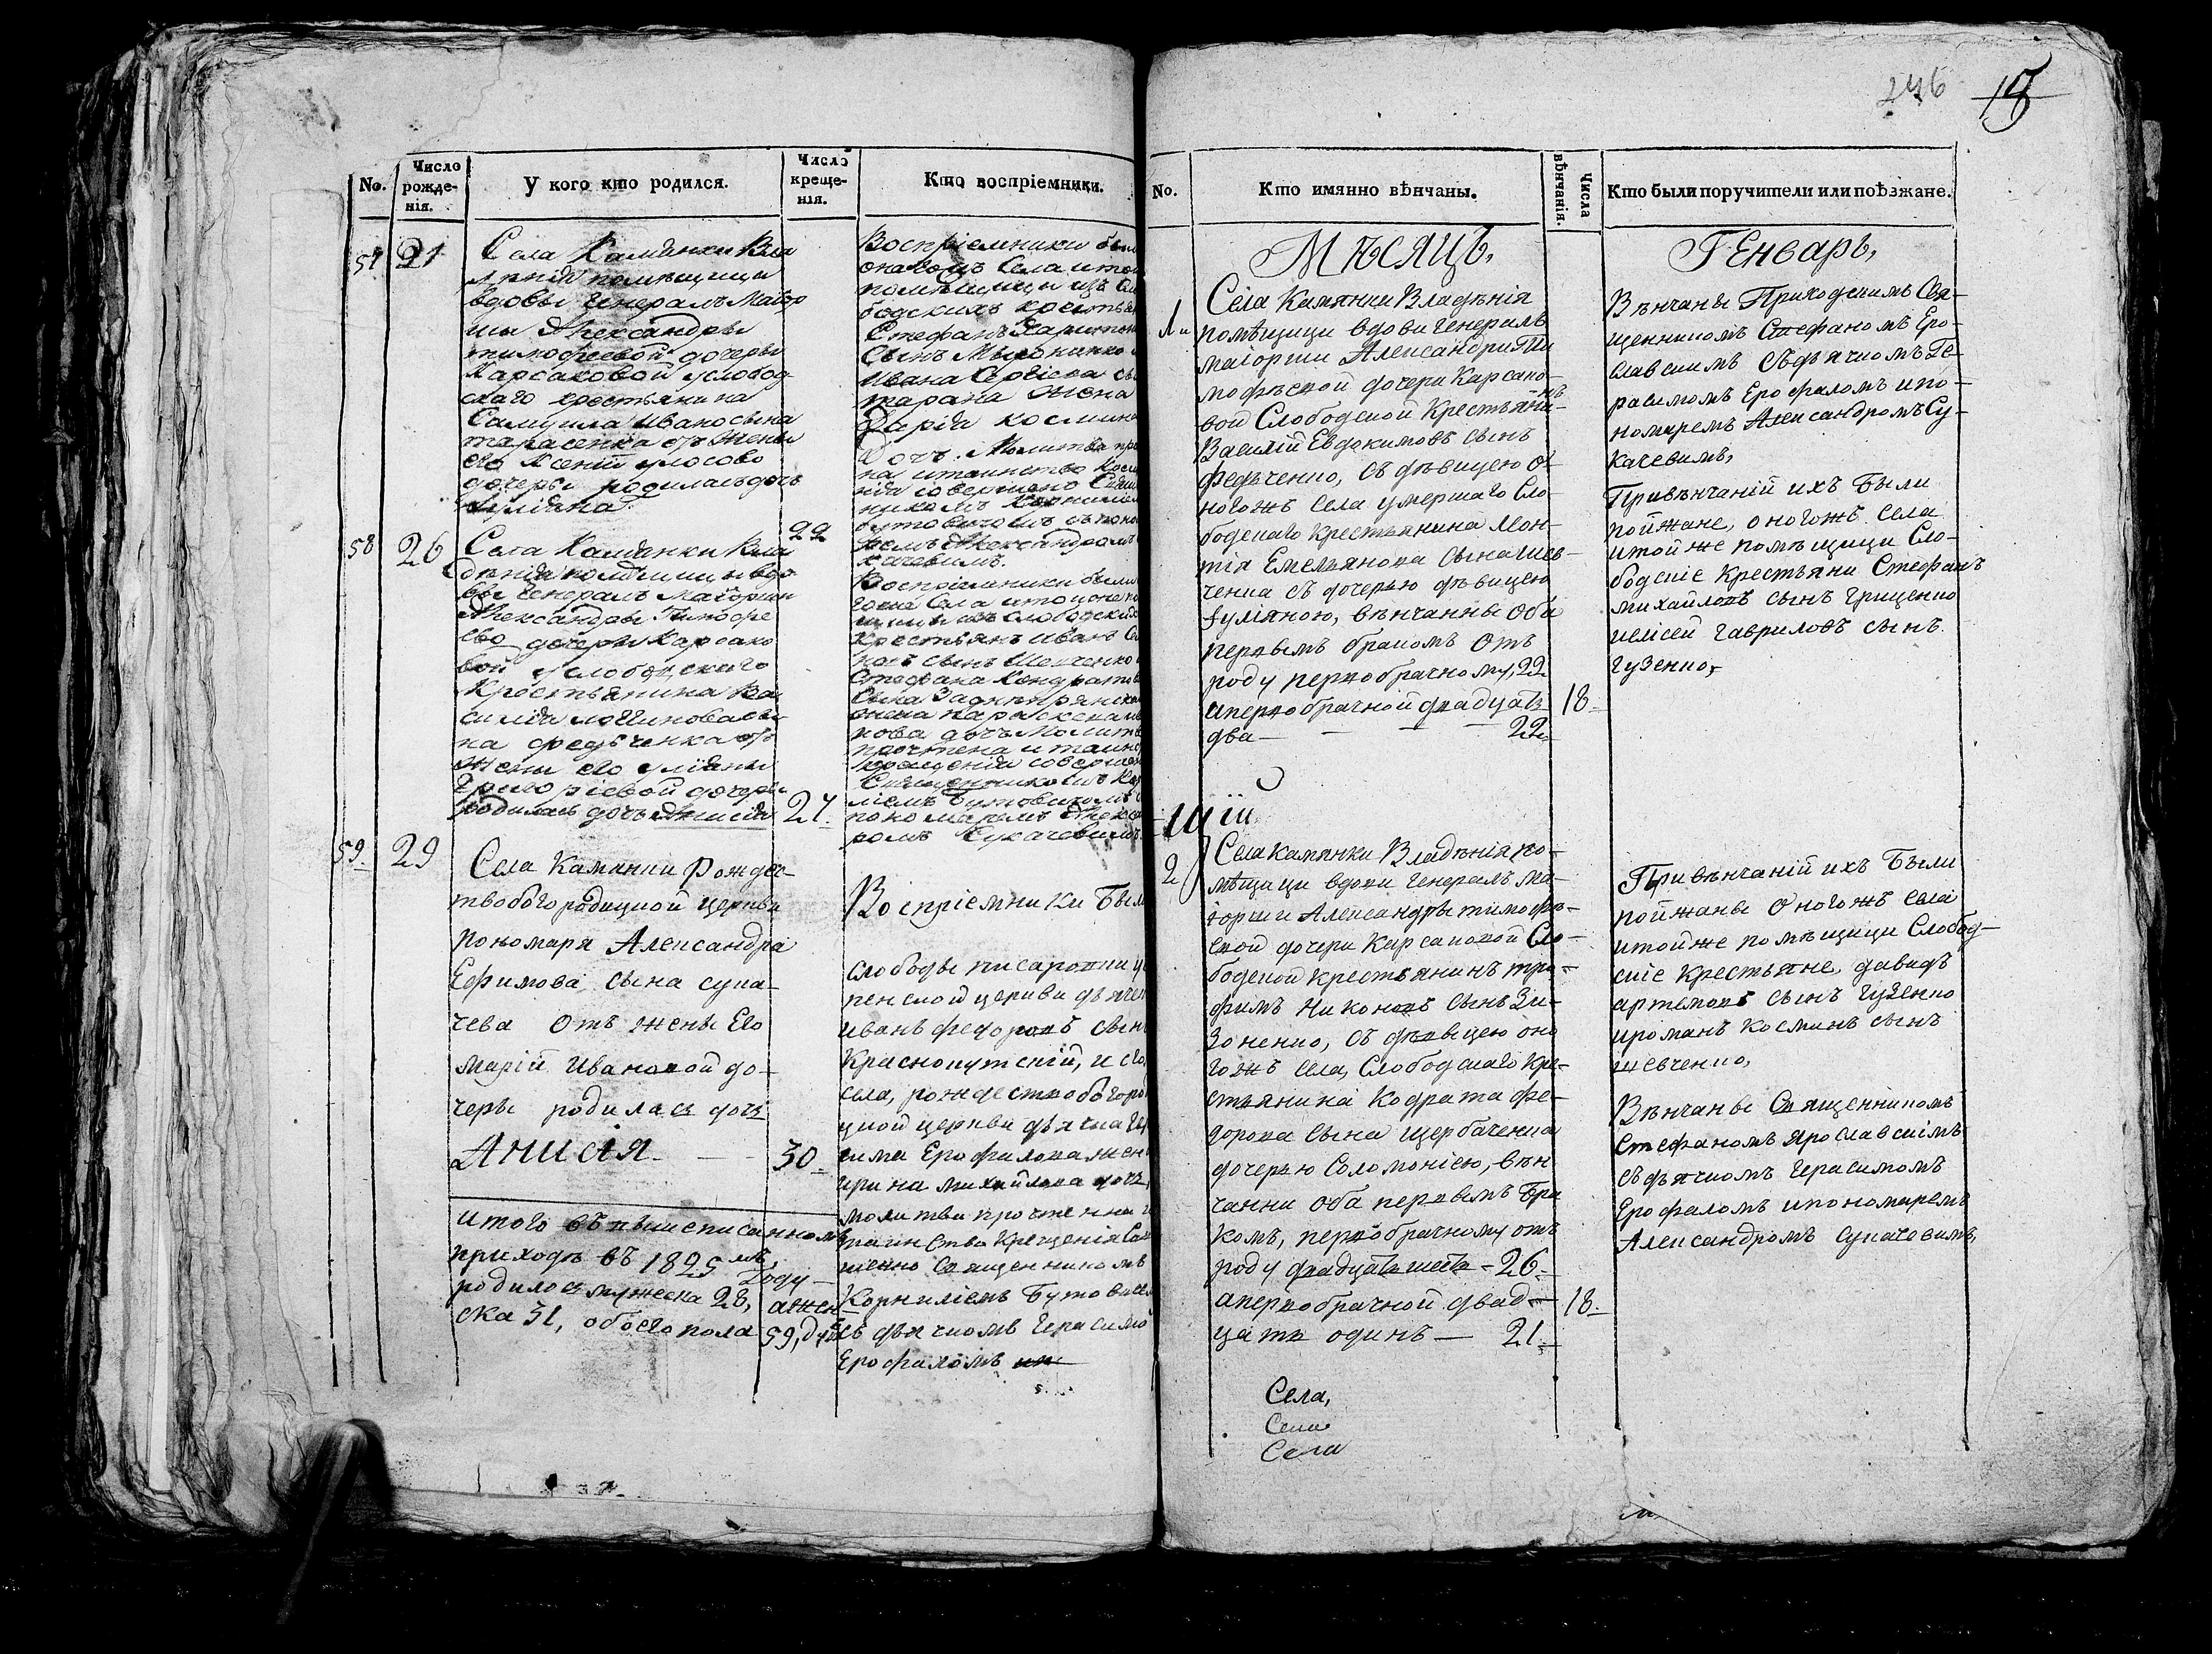 246 19
No.
Число рожденія.
У кого кто родился.
Число крещенія.
Кто воспріемники.
57 21
Села Камянки Вла
дѣнія помѣщицы
вдовы Генералъ Маіор
ши Александры
тимофеевой дочеры
Карсаковой услобод
скаго крестьянина
Самуила Ивано сына
тарасенка отъ жены
его Ксеніи
дочеры родиласъ дочъ
Іуліяна
22
Воспріемники были
оногожъ Села и той
помѣщици изъ Сло
бодскихъ крестьян
Стефанъ Харитон
Сынъ
Ивана Сергіева сы
тарана жена
Дарія космина
Дочъ. Молитва про
на и таинство Крещ
нія совершено Свящ
никомъ Корнилием
бутовичомъ съ поно
ремъ Александромъ
качевимъ.
58 26
Села Камянки Вла
дѣнія помѣщицы вдо
вы Генералъ Маіорши
Александры Тимофе
ево дочеры Карсако
вой услободскаго
Крестьянина Ва
силія логиновасы
на федьченка отъ
жены его уліяны
Григоріевой дочеры
родилась дочъ Анисія
27
Воспріемники были
гоже Села и тоижепо
мщицы изъ Слободскихъ
Крестьянъ Иванъ Се
новъ сынъ Шевченко и
Стефана Кондратов
Сына Заднипрянска
жена Параскева ив
нова дочъ Молитва
прочтена и таинс
крещенія совершен
Священникомъ Кор
ліемъ Бутовичомъ с
пономаремъ Алекса
ромъ Сукачевимъ.
59. 29
Села Камянки Рождес-
твобогородицной церкви
пономаря Александра
Ефимова сына сука-
чева отъ жены Его
маріи Ивановой до-
черы родилась дочъ
Анисія 30
Воспріемники Были
слободы писаровки у
пенской церкви дьячек
иванъ федоровъ сынъ
Краснопутскій, и сего
села, рождествобогоро
цной церкви дьячка Гер
сима Ерофалова жена
ирина михайлова дочъ,
молитви прочтенни и
таинство Крещенія Сов
шенно Священникомъ
Корниліемъ Бутовичем
съ дьячкомъ Герасимо
Ерофаломъ
итого въ вышеписанномъ
приходѣ въ 1825 мъ, году
родилось мужеска 28, ажен
ска 31, обоего пола 59, душъ
No.
Кто имянно вѣнчаны.
Числа вѣнчанія.
Кто были поручители или поѣзжане.
Мѣсяцъ,
Генварь,
1й
Села Камянки Владѣнія
помѣщици вдови генералъ
маіорши Александри Ти
мофѣевой дочери Карсако-
вой Слободской Крестьяни-
нъ
Василій Евдокимовъ сынъ
федьченко, съ дѣвицею о
ногожъ села умершаго Сло-
бодскаго Крестьянина Леон-
тія Емельянова Сына шев-
ченка съ дочерью дѣвицею
Іуліяною, вѣнчанны оба
первымъ бракомъ отъ
роду первобрачному, 22
апервобрачной двадцать
два — 22
18
Вѣнчаны Приходскимъ Свя-
щенникомъ Стефаномъ Яро-
славскимъ Съдьячкомъ Ге-
расимомъ Ерофаломъ и по-
номаремъ Александромъ Су-
качевимъ,
Привѣнчаній ихъ Были
пойжане, оногожъ Села
итойже помѣщици Сло-
бодскіе Крестьяни Стефанъ
михайловъ сынъ Гриценко
иелісей гавриловъ сынъ
гузенко,
2
Села камянки Владѣнія по-
мѣщици вдови Генералъ ма-
іорши Александры тимофѣ-
евой дочери Карсаковой Сло-
бодской крестьянинъ тро-
фимъ Никоновъ сынъ Зи-
зоненко, съ дѣвицею оно
гожъ села, Слободскаго Кре-
стьянина Кодрата фе-
дорова сына щербаченка
дочерью Соломоніею, вѣн
чанни оба первымъ Бра
комъ, первобрачному отъ
роду двадцать шесть - 26.
апервобрачной двад-
цать одинъ — 21.
18.
Привѣнчаній ихъ Были
пойжаны Оногожъ села
итойже помѣщици Слобод-
скіе Крестьяне, давидъ
артемовъ сынъ гузенко
ироманъ косминъ сынъ
шевченко,
Вѣнчаны Священникомъ
Стефаномъ Ярославскімъ
съдьячкомъ Герасимомъ
Ерофаломъ ипономаремъ
Александромъ сукачевимъ,
Села,
Села
Села